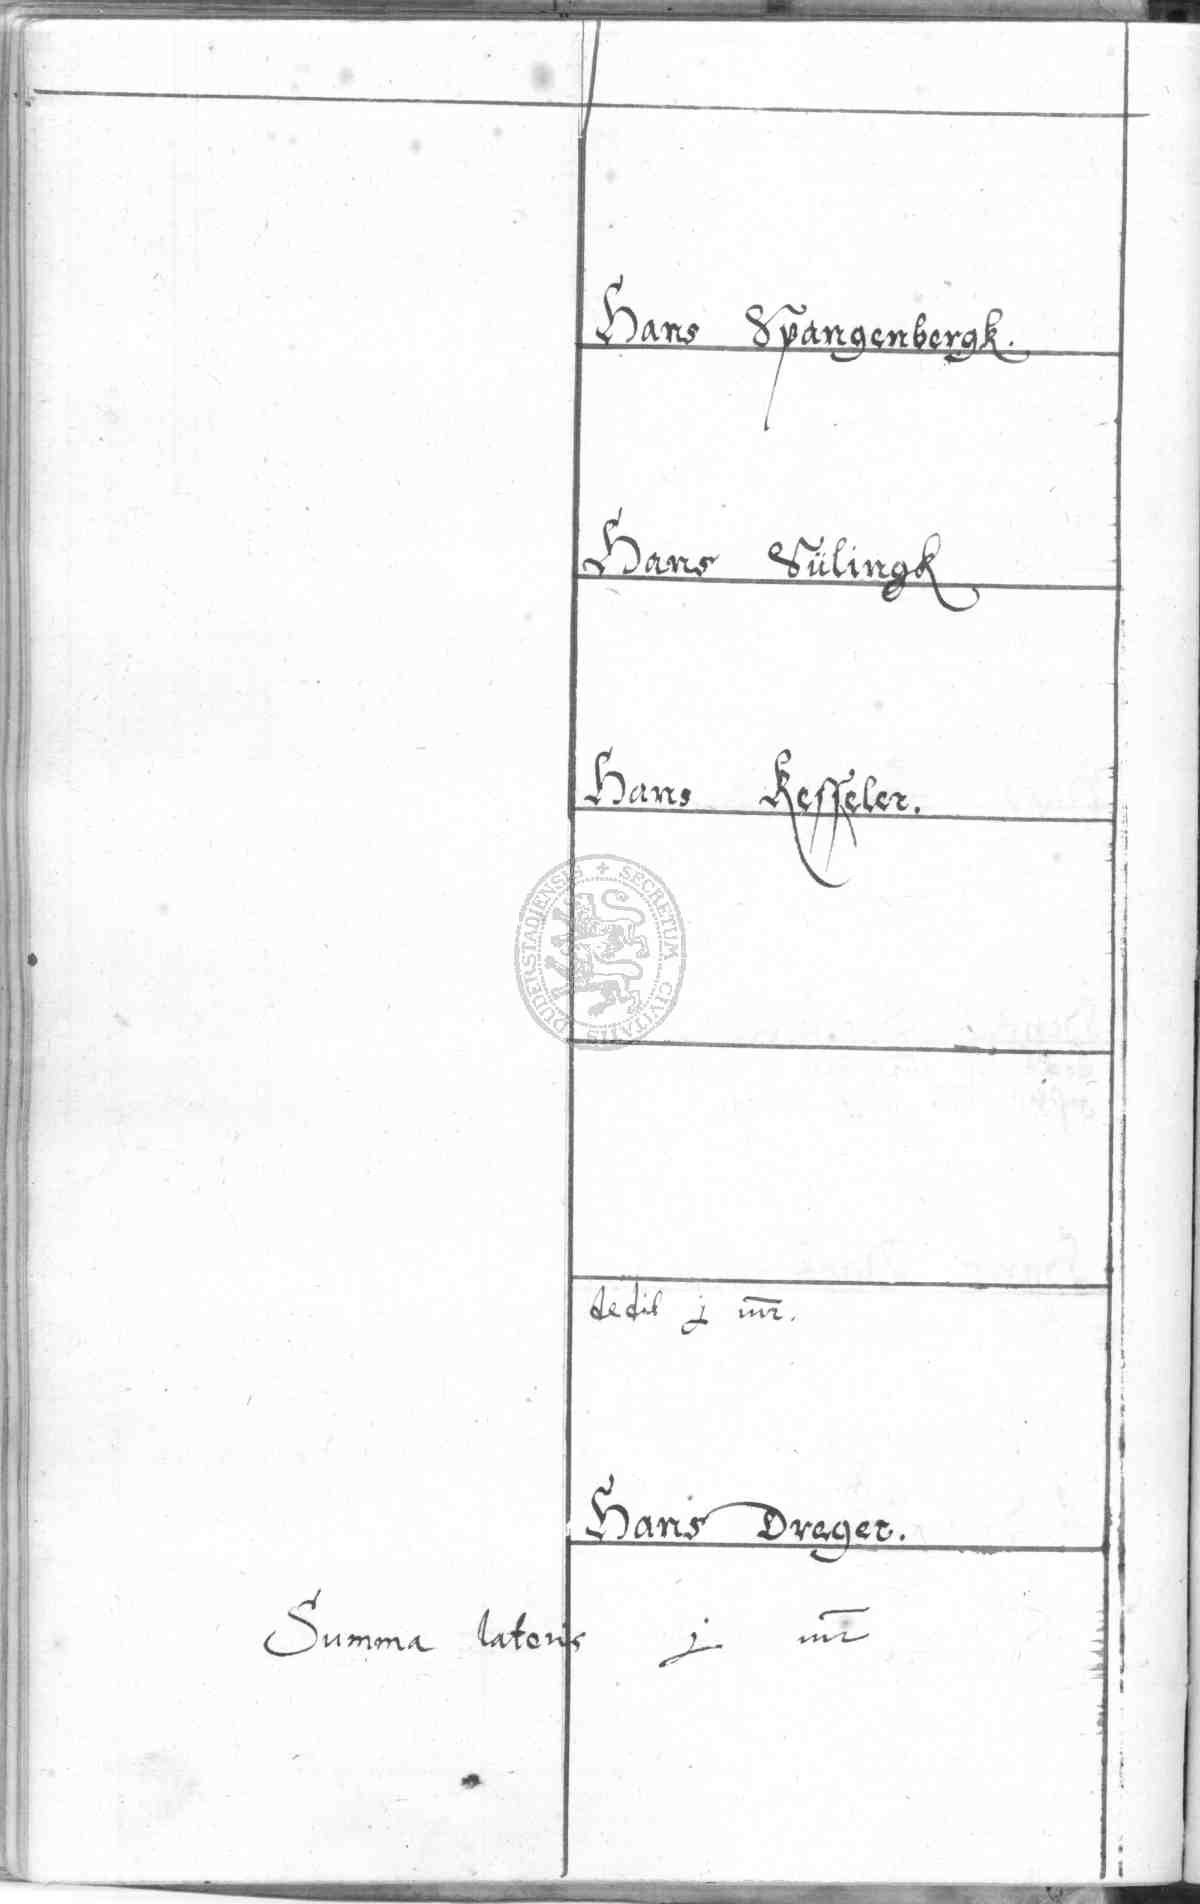 Hans Spangenbergk.
Hans Sülingk
Hans Kesseler.
SECRETUM CIVITATIS DUDERSTADIENSIS
dedit j mr.
Hans Dreger.
Summa lateris j mr